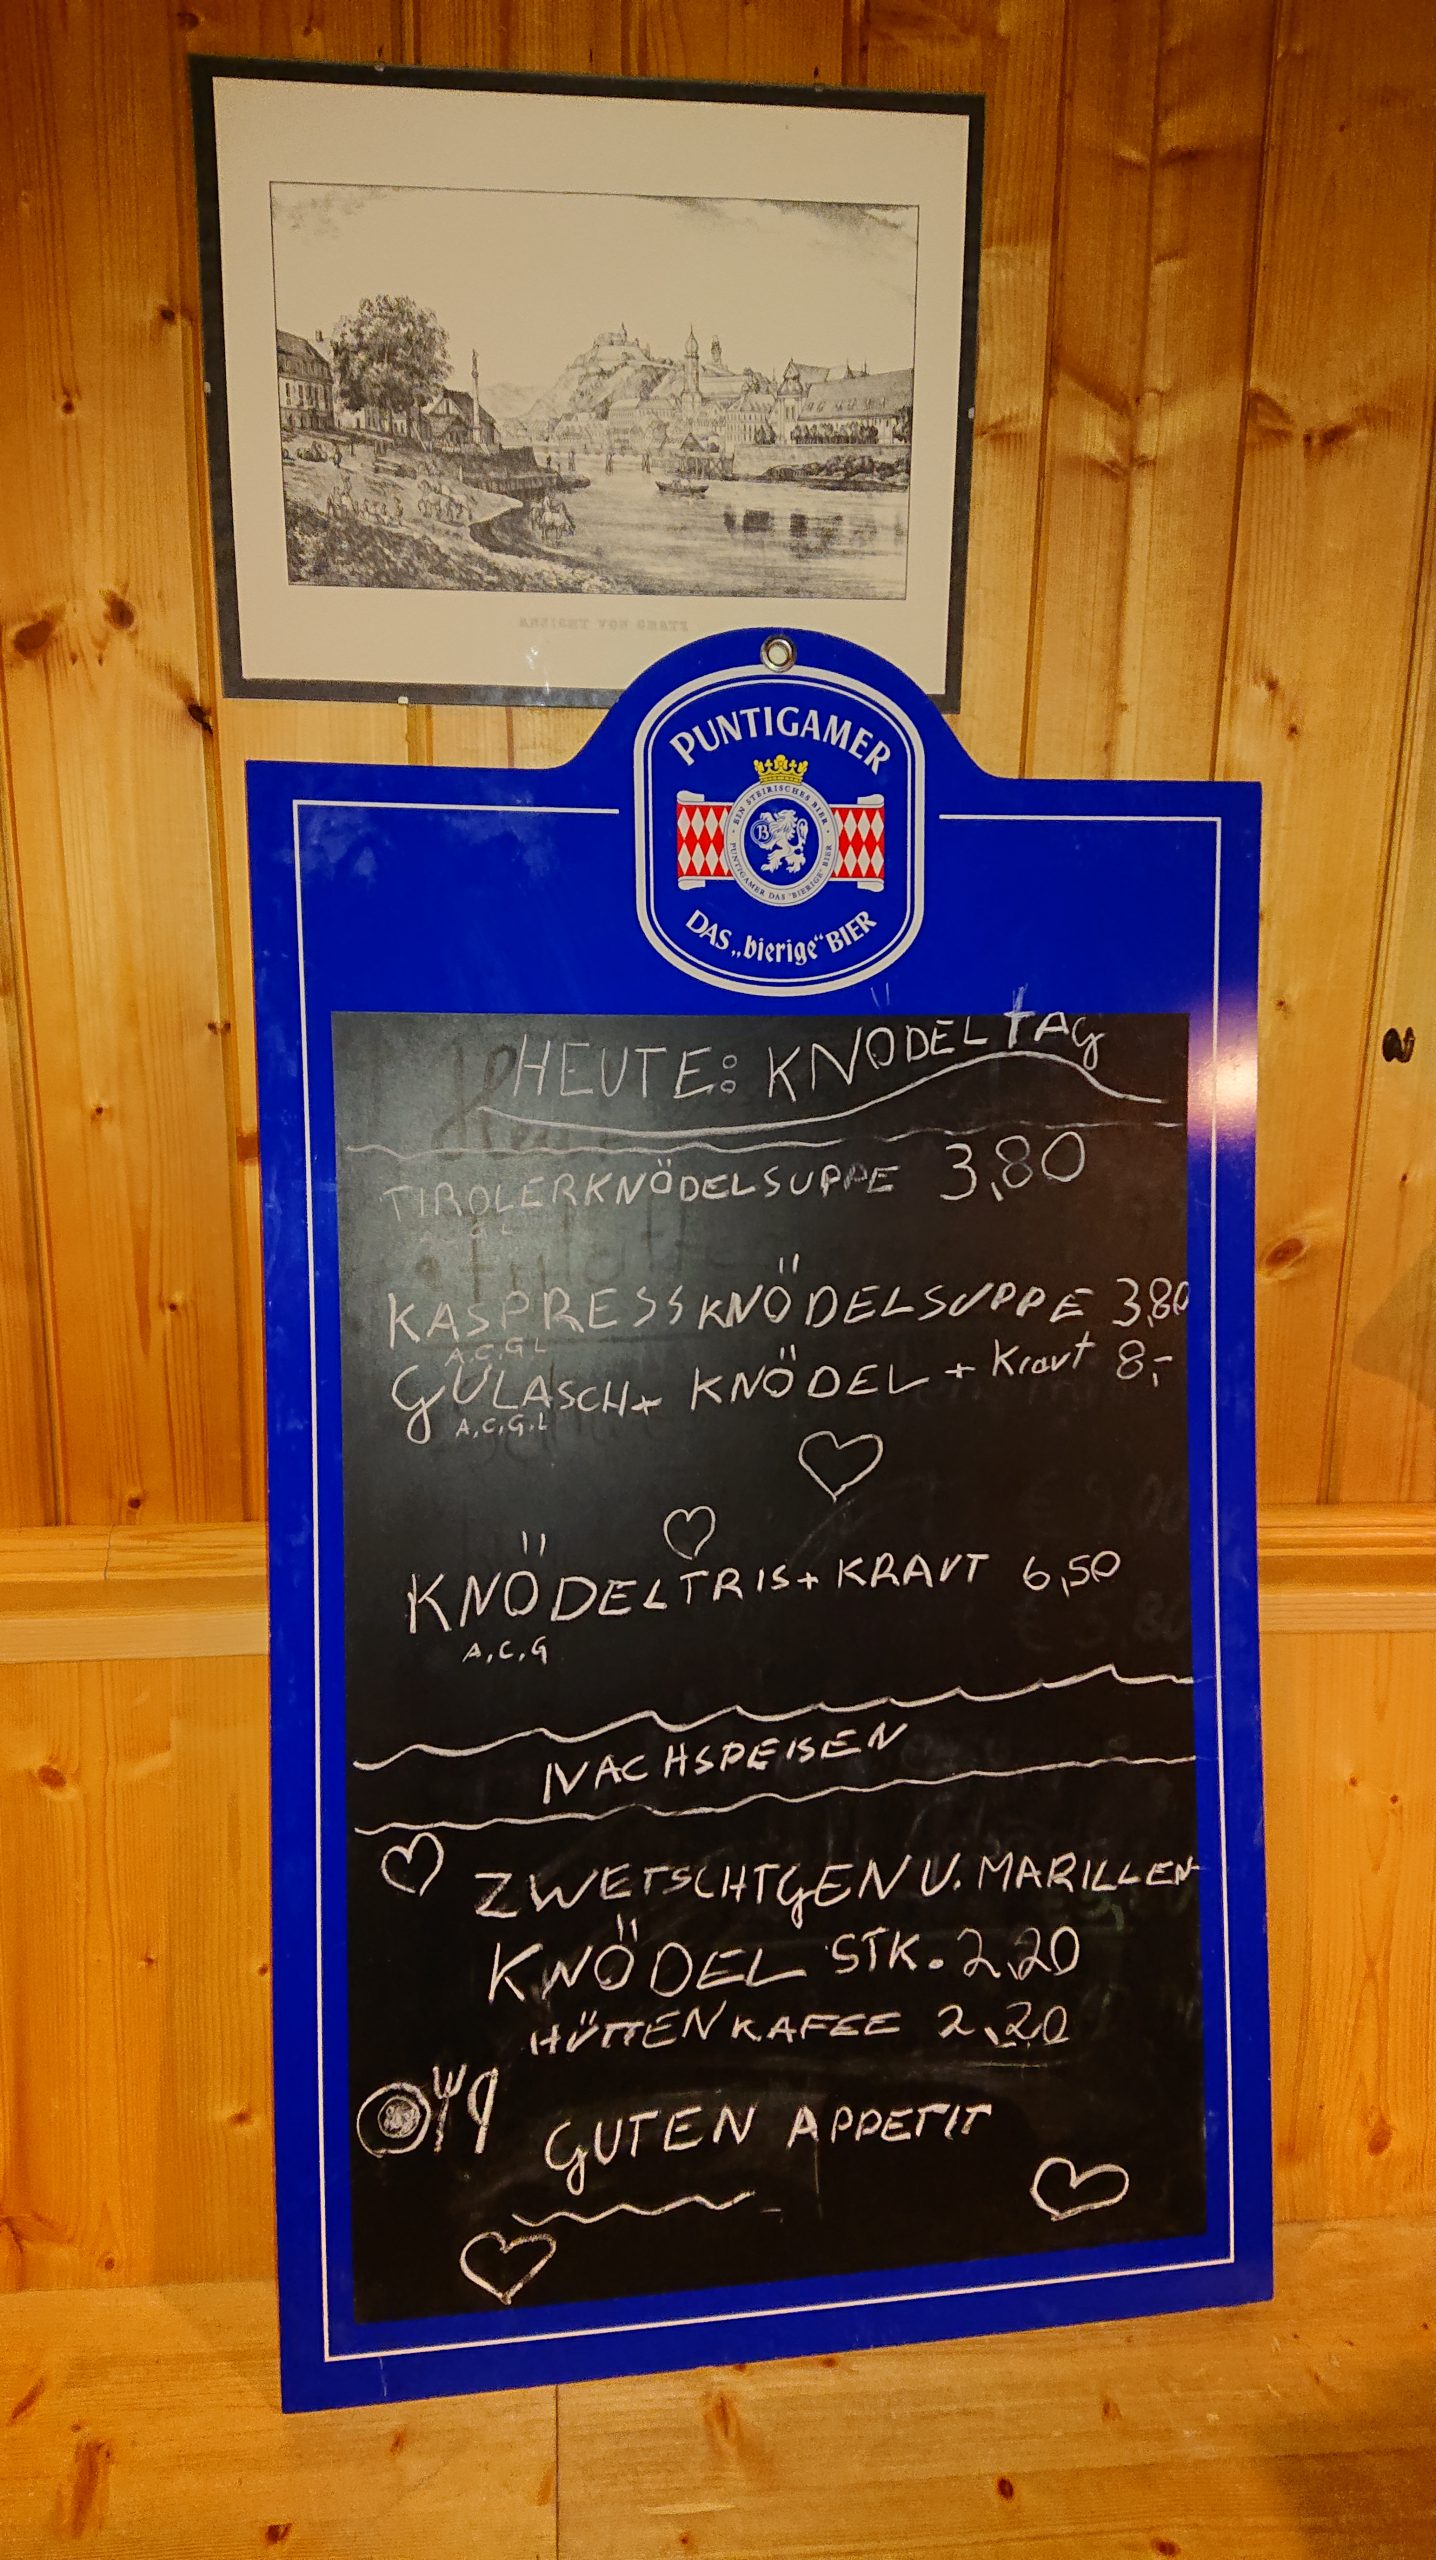 ANSICHT VON GRATZ
PUNTIGAMER
EIN STEIRISCHES BIER
PUNTIGAMER DAS "BIERIGE" BIER
DAS „bierige“ BIER
HEUTE: KNÖDELTAG
TIROLERKNÖDELSUPPE 3,80
KASPRESSKNÖDELSUPPE 3,80
A,C,G L
GULASCH+ KNÖDEL + Kraut 8,-
A,C,G,L
KNÖDELTRIS+ KRAUT 6,50
A,C,G
NACHSPEISEN
ZWETSCHTGEN U. MARILLEN-
KNÖDEL STK. 2,20
HÜTTENKAFEE 2,20
GUTEN APPETIT